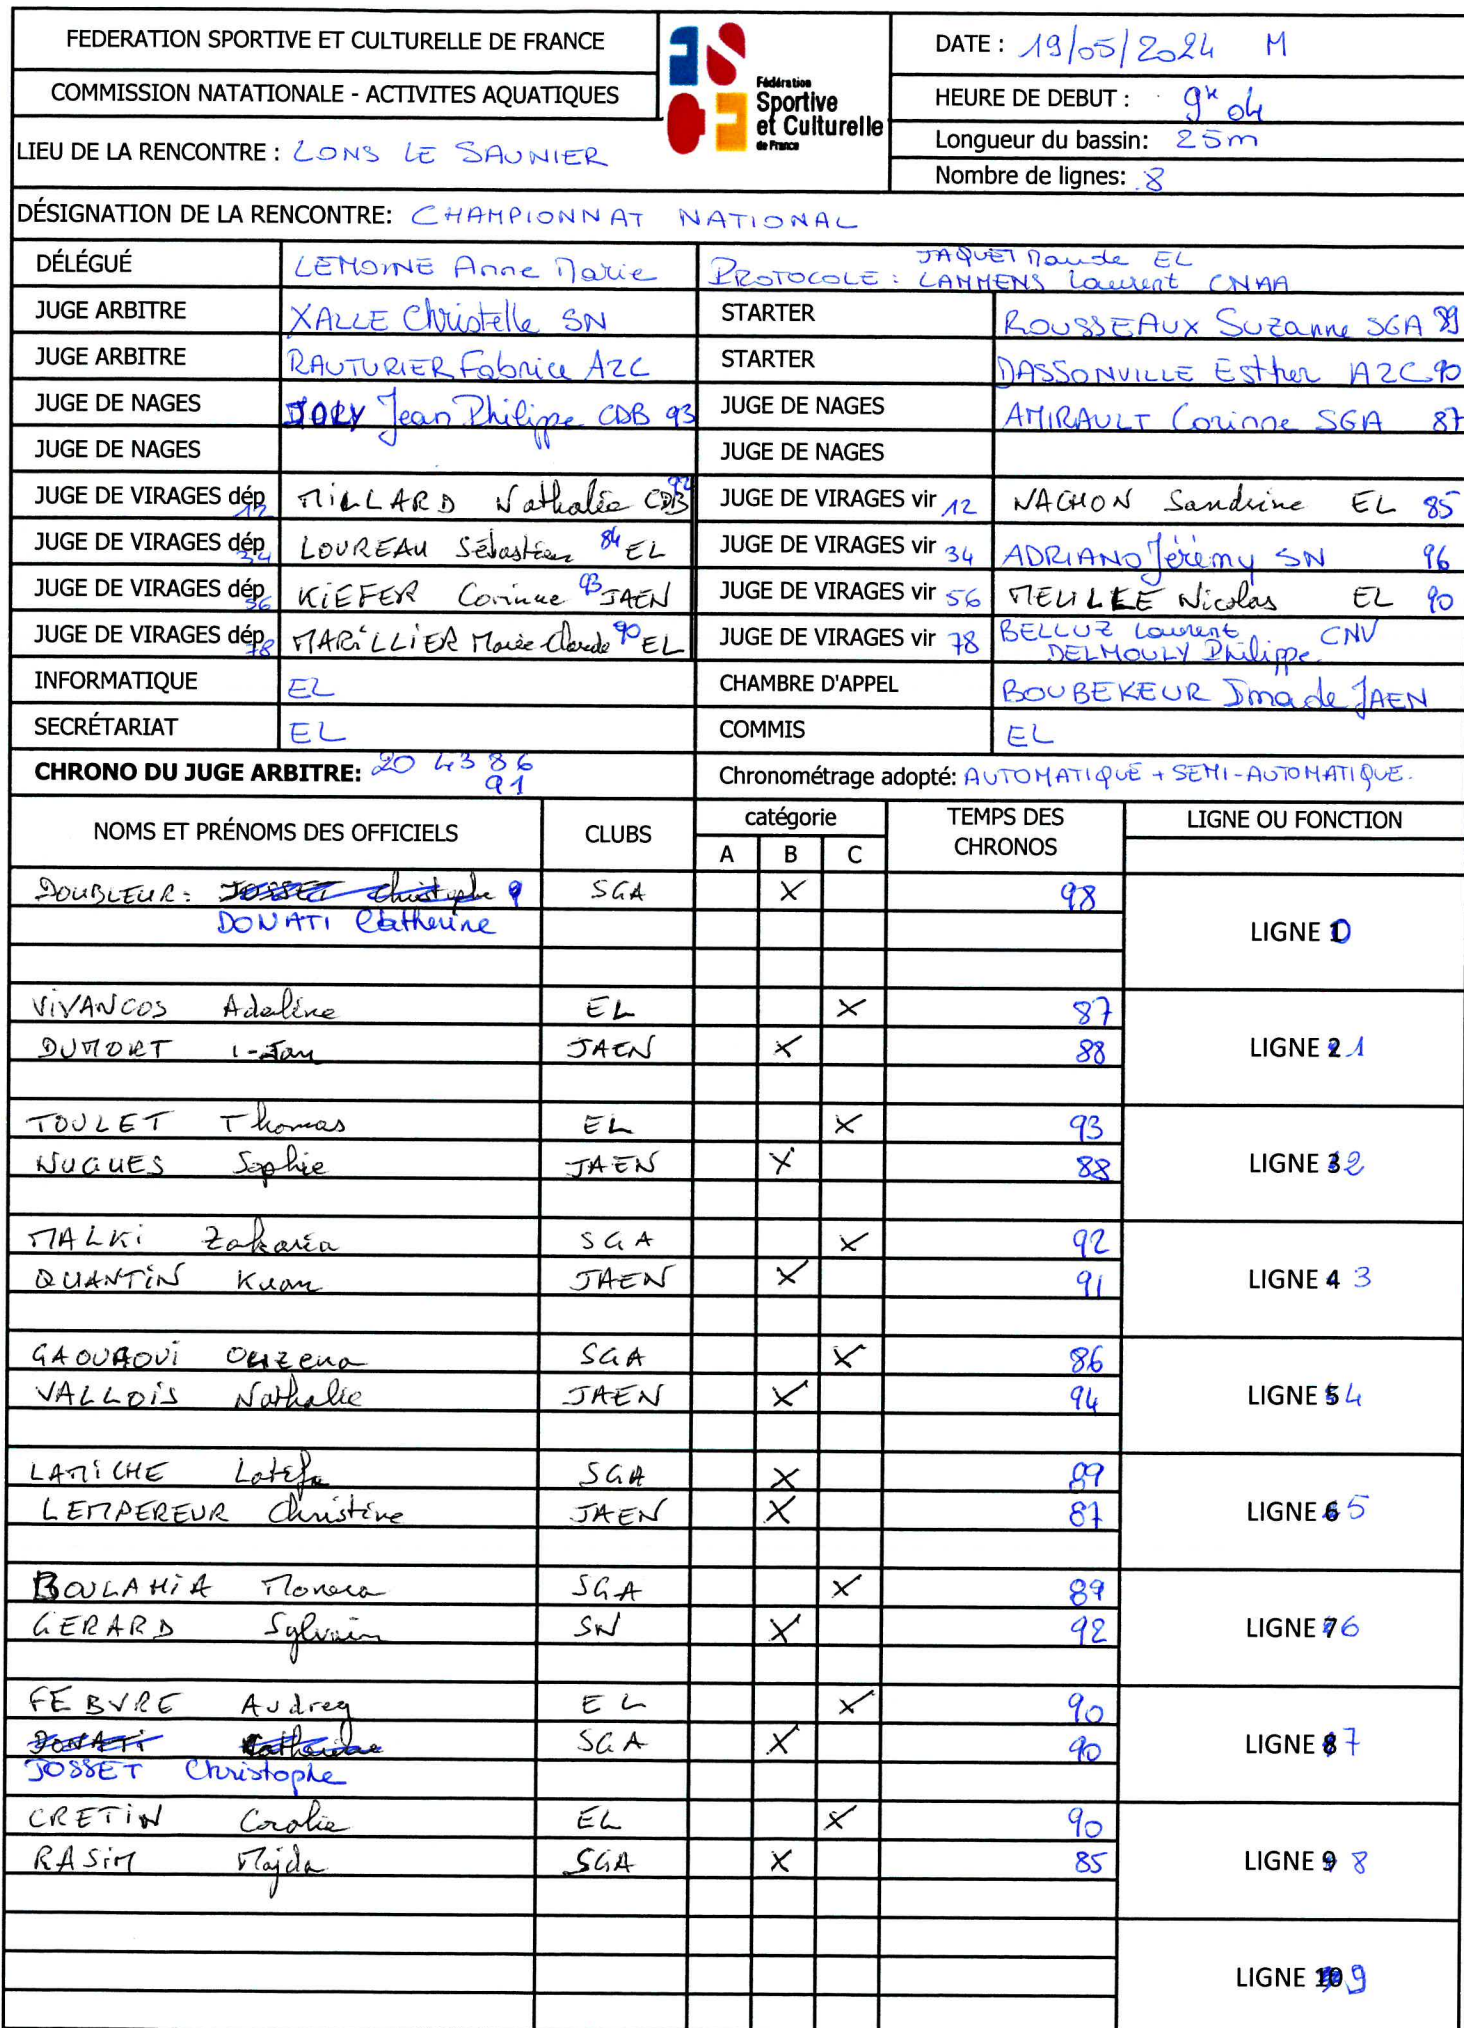 FEDERATION SPORTIVE ET CULTURELLE DE FRANCE
COMMISSION NATATIONALE - ACTIVITES AQUATIQUES
LIEU DE LA RENCONTRE : LONS LE SAUNIER
Fédération
Sportive
et Culturelle
de France
DATE : 19/05/2024 M
HEURE DE DEBUT : 9h 04
Longueur du bassin: 25m
Nombre de lignes: 8
DÉSIGNATION DE LA RENCONTRE: CHAMPIONNAT NATIONAL
DÉLÉGUÉ LEMOINE Anne Marie PROTOCOLE : JAQUET Maude EL
LAMMENS Laurent CNAA
JUGE ARBITRE XALLE Christelle SN STARTER ROUSSEAUX Suzanne SGA 89
JUGE ARBITRE RAUTURIER Fabrice A2C STARTER DASSONVILLE Esther A2C 90
JUGE DE NAGES JOLY Jean Philippe CDB 93 JUGE DE NAGES AMIRAULT Corinne SGA 87
JUGE DE NAGES JUGE DE NAGES
JUGE DE VIRAGES dép 12 MILLARD Nathalie CDB 92 JUGE DE VIRAGES vir 12 NACHON Sandrine EL 85
JUGE DE VIRAGES dép 34 LOUREAU Sébastien 84 EL JUGE DE VIRAGES vir 34 ADRIANO Jérémy SN 96
JUGE DE VIRAGES dép 56 KIEFER Corinne 93 JAEN JUGE DE VIRAGES vir 56 MEULLE Nicolas EL 90
JUGE DE VIRAGES dép 78 MARILLIER Marie-Claude 90 EL JUGE DE VIRAGES vir 78 BELLUZ Laurent CNV
DELMOULY Philippe
INFORMATIQUE EL CHAMBRE D'APPEL BOUBEKEUR Imade JAEN
SECRÉTARIAT EL COMMIS EL
CHRONO DU JUGE ARBITRE: 20 43 86
91
Chronométrage adopté: AUTOMATIQUE + SEMI-AUTOMATIQUE.
NOMS ET PRÉNOMS DES OFFICIELS CLUBS catégorie TEMPS DES CHRONOS LIGNE OU FONCTION
A B C
DOUBLEUR: JOSSET Christophe SGA X 98
DONATI Catherine LIGNE 0
VIVANCOS Adeline EL X 87
DUMORT JAEN X 88 LIGNE 2 1
TOULET Thomas EL X 93
NUGUES Sophie JAEN X 88 LIGNE 3 2
MALKI Zakaria SGA X 92
QUANTIN JAEN X 91 LIGNE 4 3
GAOUAOUI Ouzena SGA X 86
VALLOIS Nathalie JAEN X 94 LIGNE 5 4
LAMICHE Latifa SGA X 89
LEMPEREUR Christine JAEN X 87 LIGNE 6 5
BOULAHIA SGA X 89
GERARD Sylvain SN X 92 LIGNE 7 6
FEBVRE Audrey EL X 90
DONATI Catherine SGA X 90 LIGNE 8 7
JOSSET Christophe
CRETIN Coralie EL X 90
RASIM Majda SGA X 85 LIGNE 9 8
LIGNE 10 9